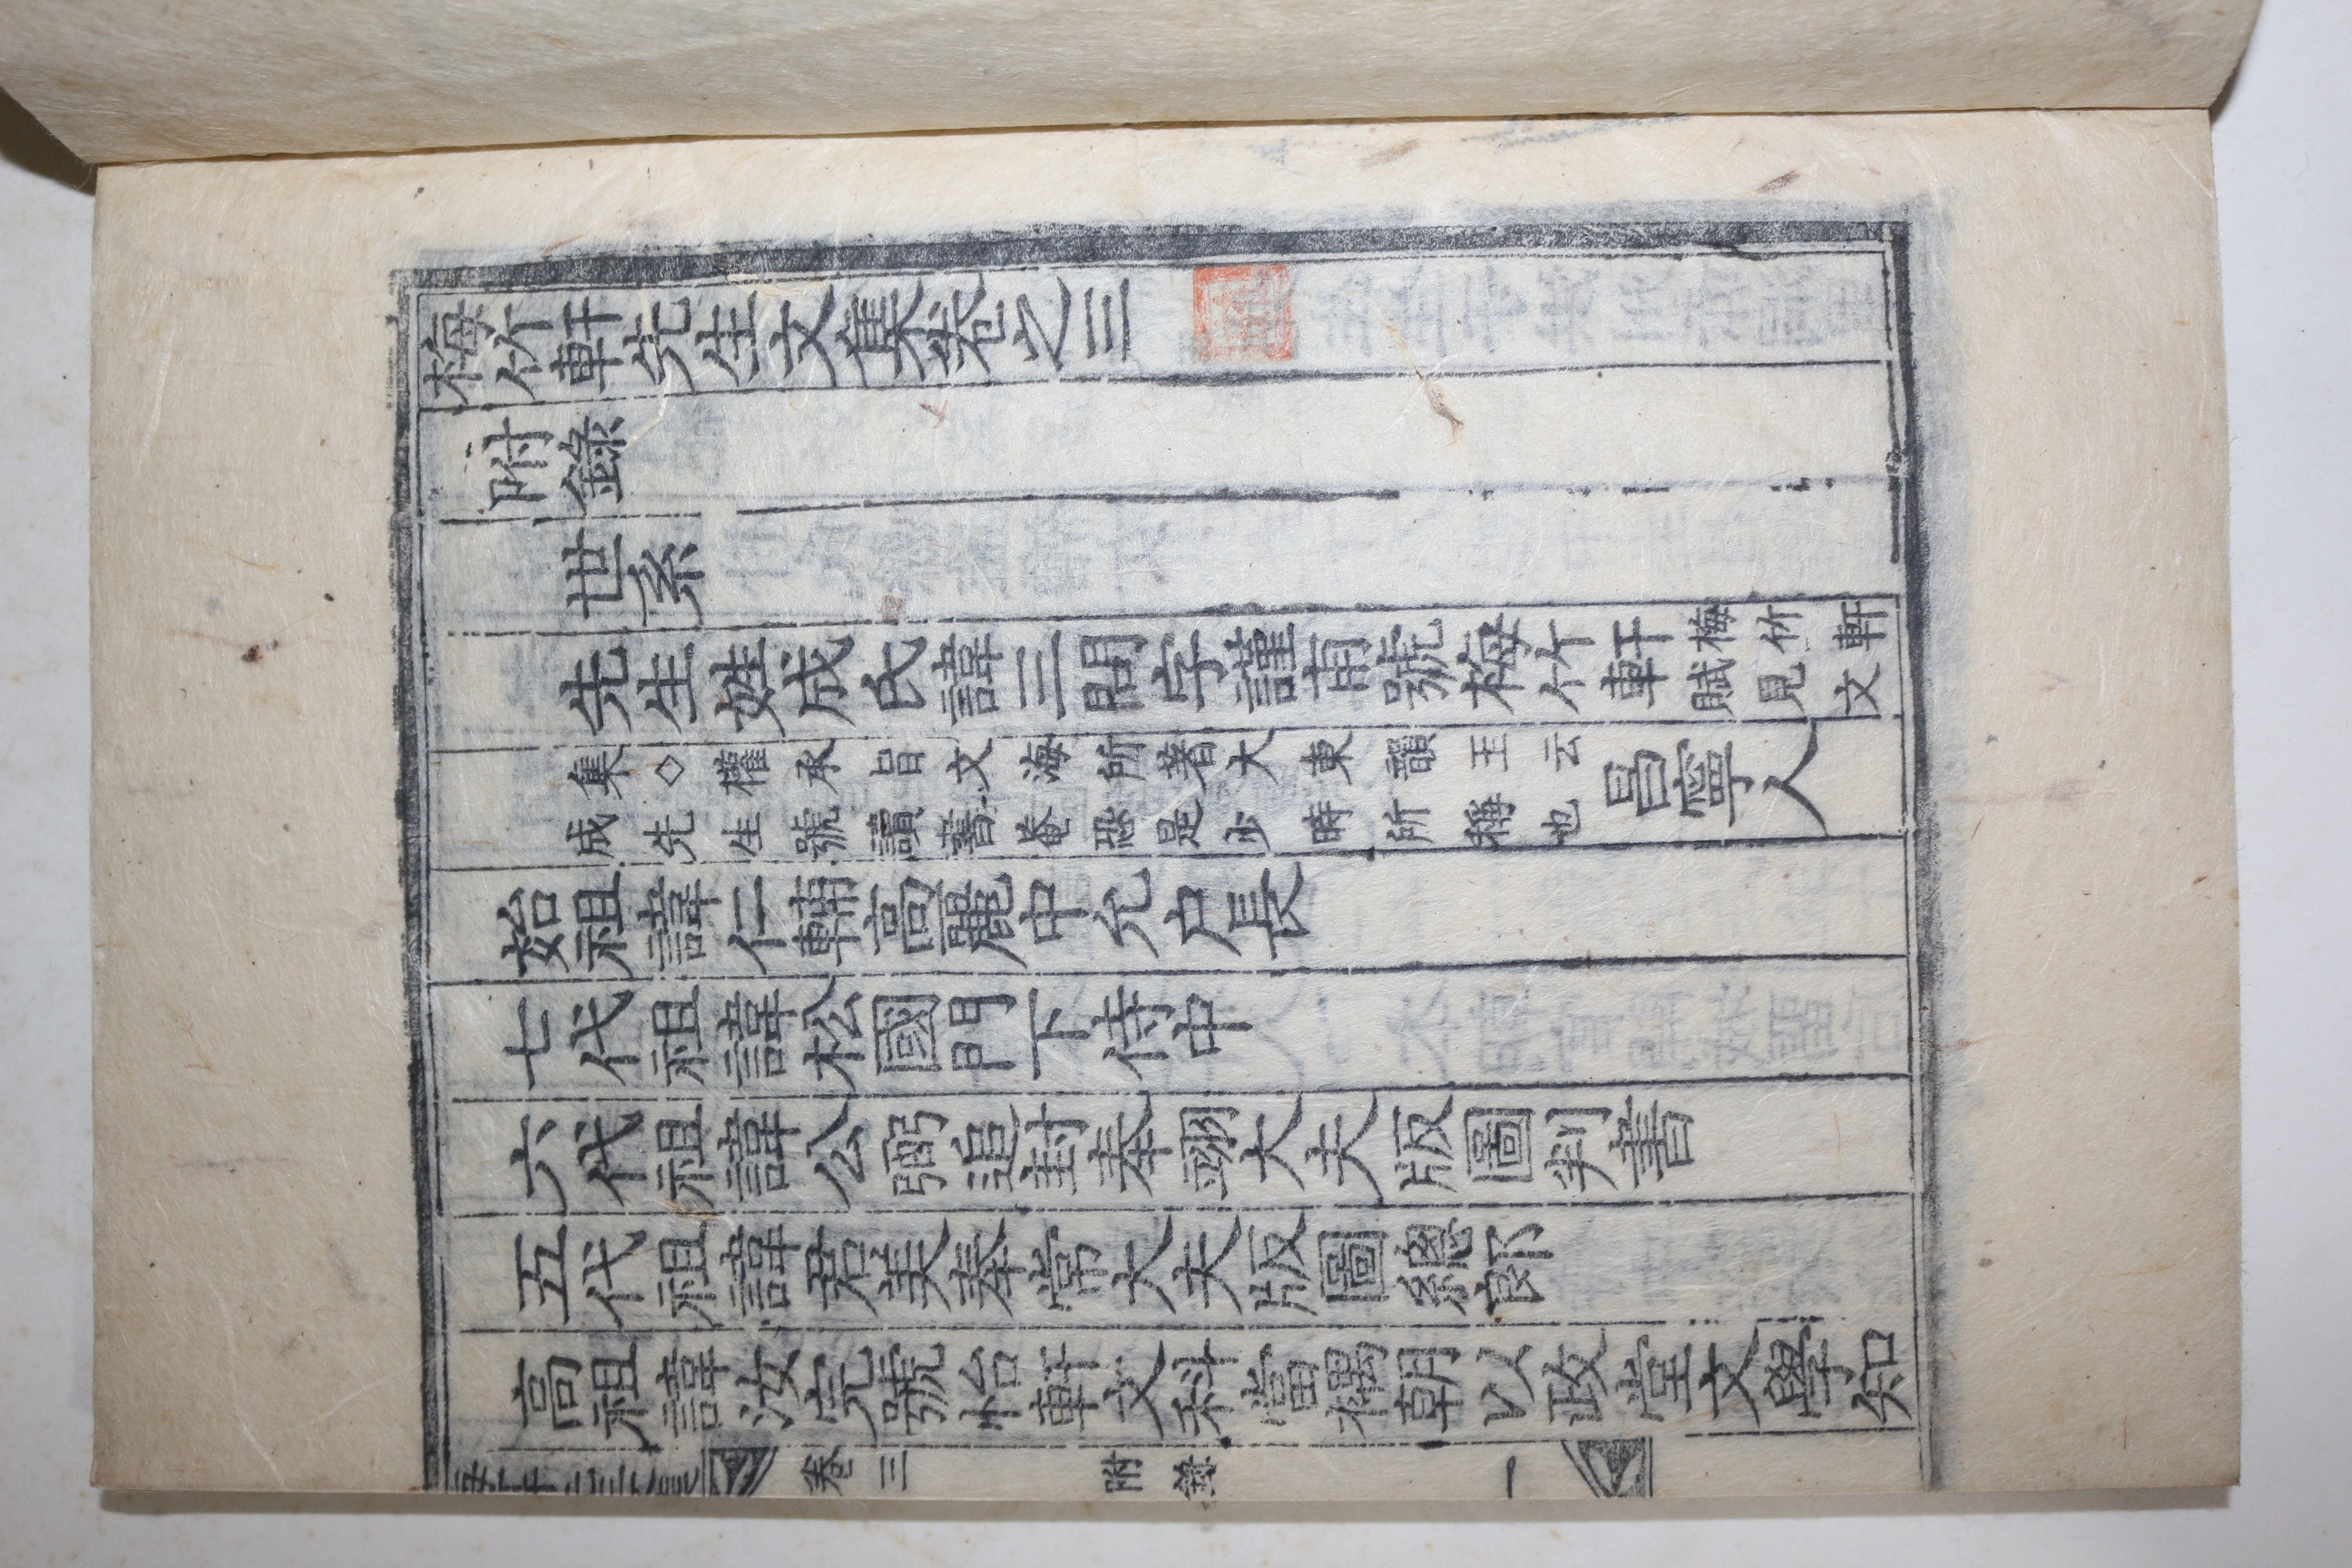 梅竹軒先生文集卷之三
附錄
世系
先生姓成氏諱三問字謹甫號梅竹軒
梅竹軒
賦見文
集◇權承旨文海所著大東韻玉云
成先生號讀書菴恐是少時所稱也
昌寧人
始祖諱仁輔高麗中允戶長
七代祖諱松國門下侍中
六代祖諱公弼追封奉翊大夫版圖判書
五代祖諱君美奉常大夫版圖總郞
高祖諱汝完號怡軒文科當禑朝以政堂文學知
卷三 附錄 一